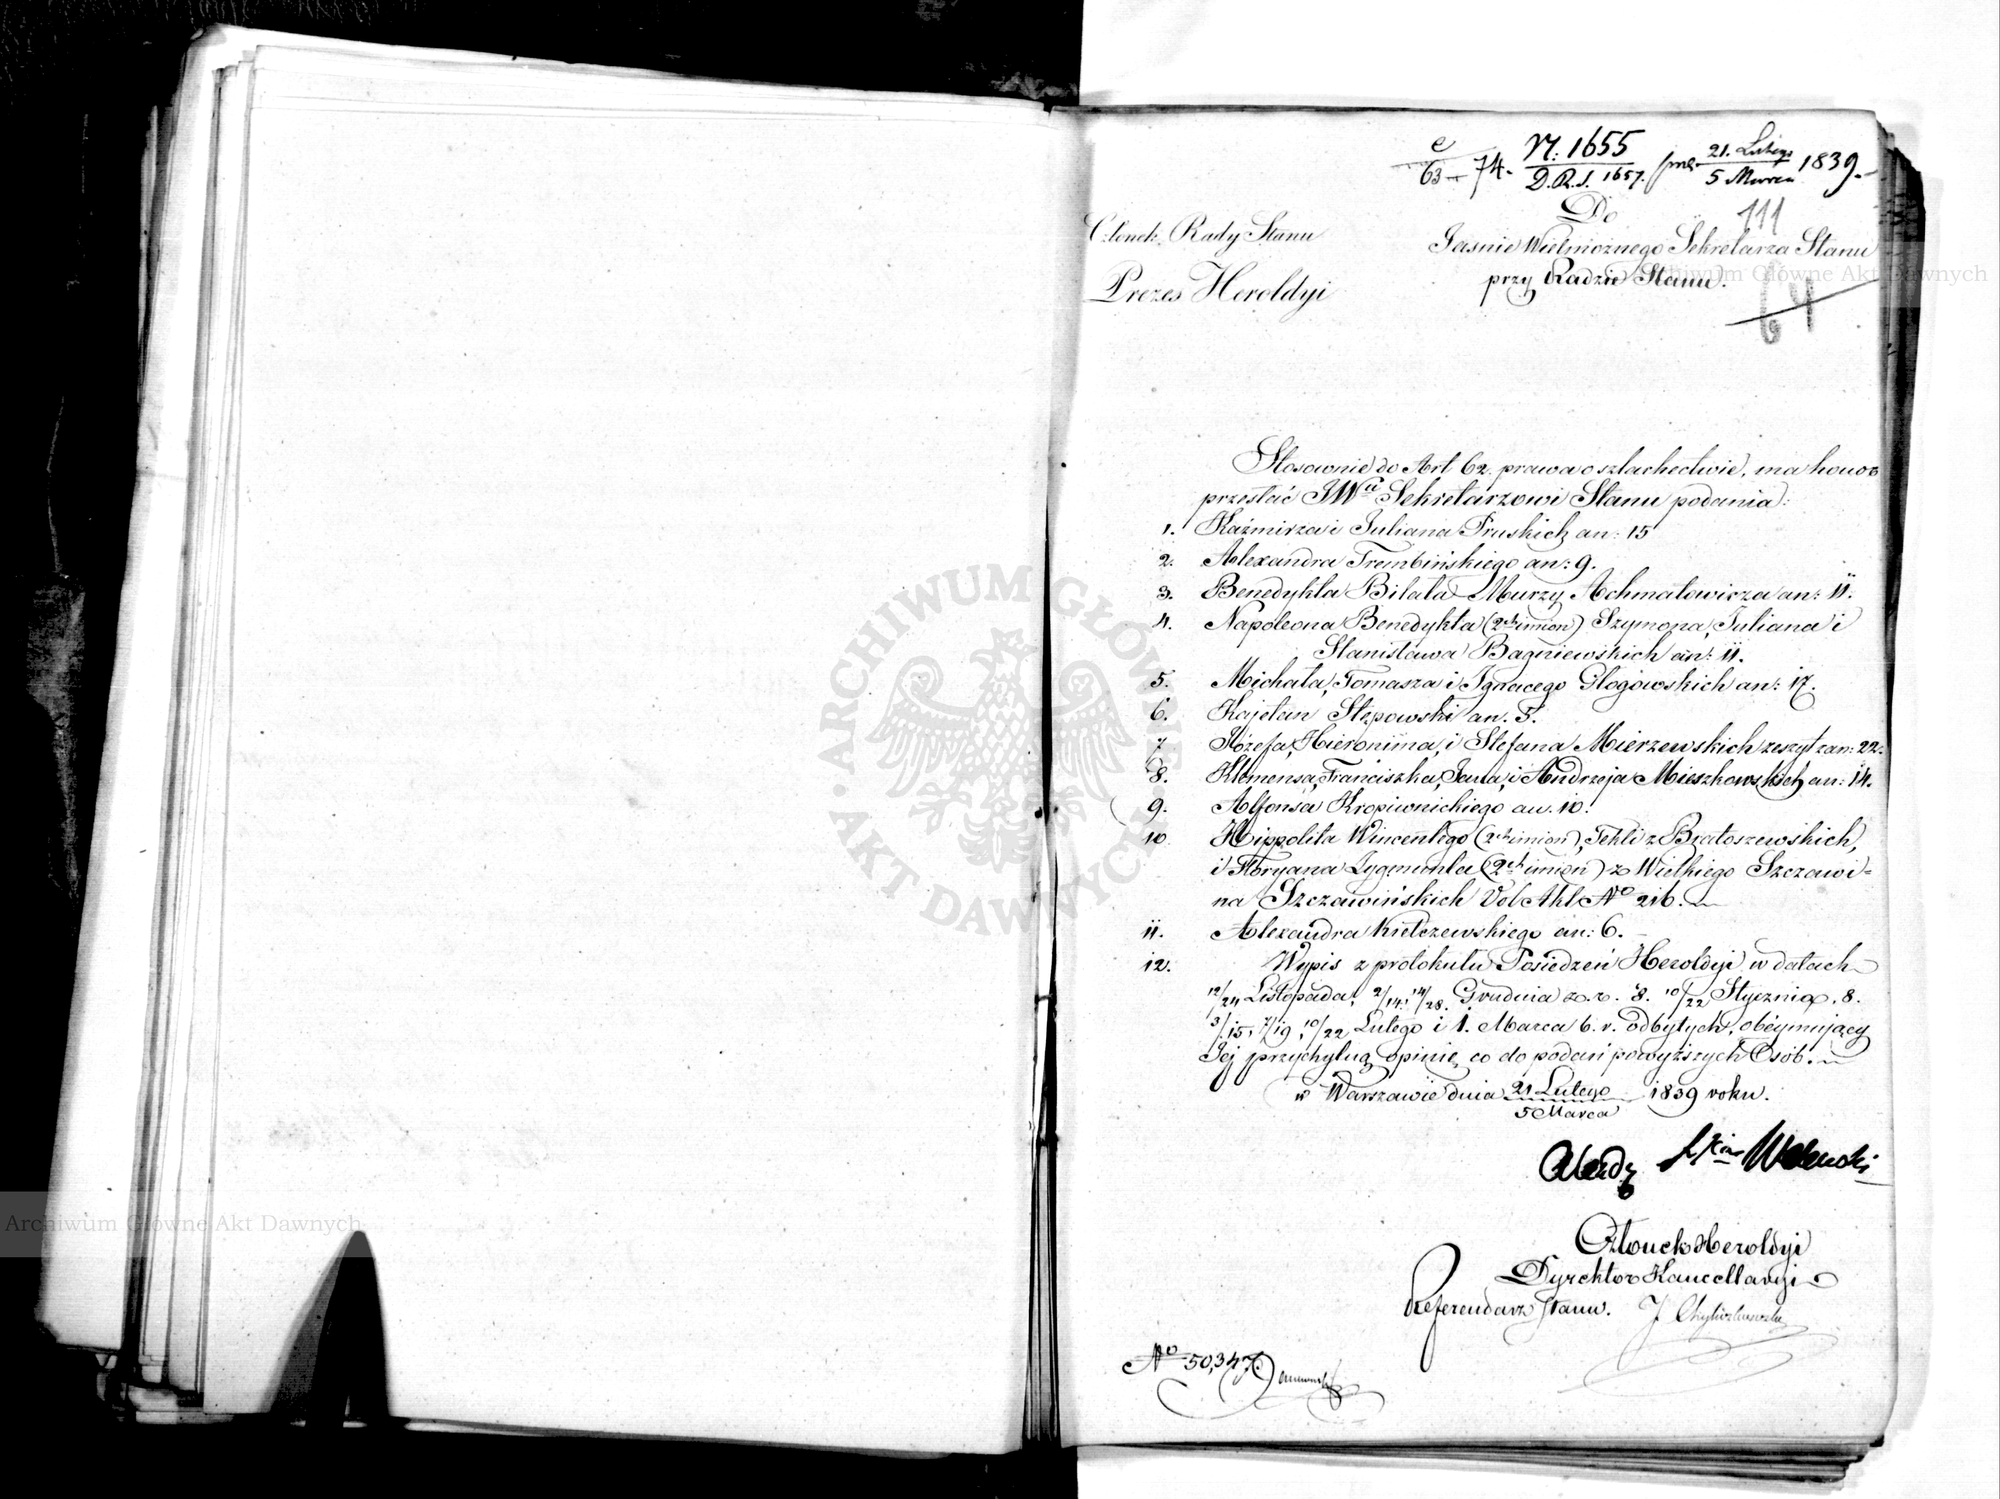 e
63 – 74. N: 1655 21. Lutego
D.R.S. 1657. 5 Marca 1839.
Do 111
Członek Rady Stanu
Prezes Heroldyi
Jaśnie Wielmożnego Sekretarza Stanu
przy Radzie Stanu.
64
Stosownie do Art 62. prawa o szlachectwie, ma honor
przesłać JWu Sekretarzowi Stanu podania:
1. Kaźmirza i Juliana Pruskich an: 15
2. Alexandra Trembińskiego an: 9.
3. Benedykta Bilala Murzy Achmatowicza an: 11.
4. Napoleona Benedykta (2ch imion) Szymona, Juliana i
Stanisława Bagniewskich an: 11.
5. Michała, Tomasza i Ignacego Głogowskich an: 17.
6. Kajetan Stępowski an. 5.
7 Józefa, Hieronima, i Stefana Mierzewskich zeszyt zan: 22.
8. Klemensa, Franciszka, Jana, i Andrzeja Mieszkowskich an: 14.
9. Alfonsa Kropiwnickiego an. 10.
10 Hippolita Wincentego (2ch imion), Tekli z Bratoszewskich,
i Floryana Zygmunta (2ch imion) z Wielkiego Szczawi=
na Szczawińskich Vol Akt No 216.
11. Alexandra Kiełczewskiego an: 6.
12. Wypis z protokułu Posiedzeń Heroldyi w datach
12/24 Listopada, 2/14, 14/28. Grudnia z. r. 8. 10/22 Stycznia, 8.
3/15, 7/19, 10/22 Lutego i 1. Marca b. r. odbytych, obeymujący
Jej przychylną opinię co do podań powyższych Osób.
w Warszawie dnia 21 Lutego 1839 roku.
5 Marca
Walewski
Członek Heroldyi
Dyrektor Kancellaryi
Referendarz Stanu.
No 50,347
ARCHIWUM GŁÓWNE AKT DAWNYCH
Archiwum Główne Akt Dawnych
Archiwum Główne Akt Dawnych